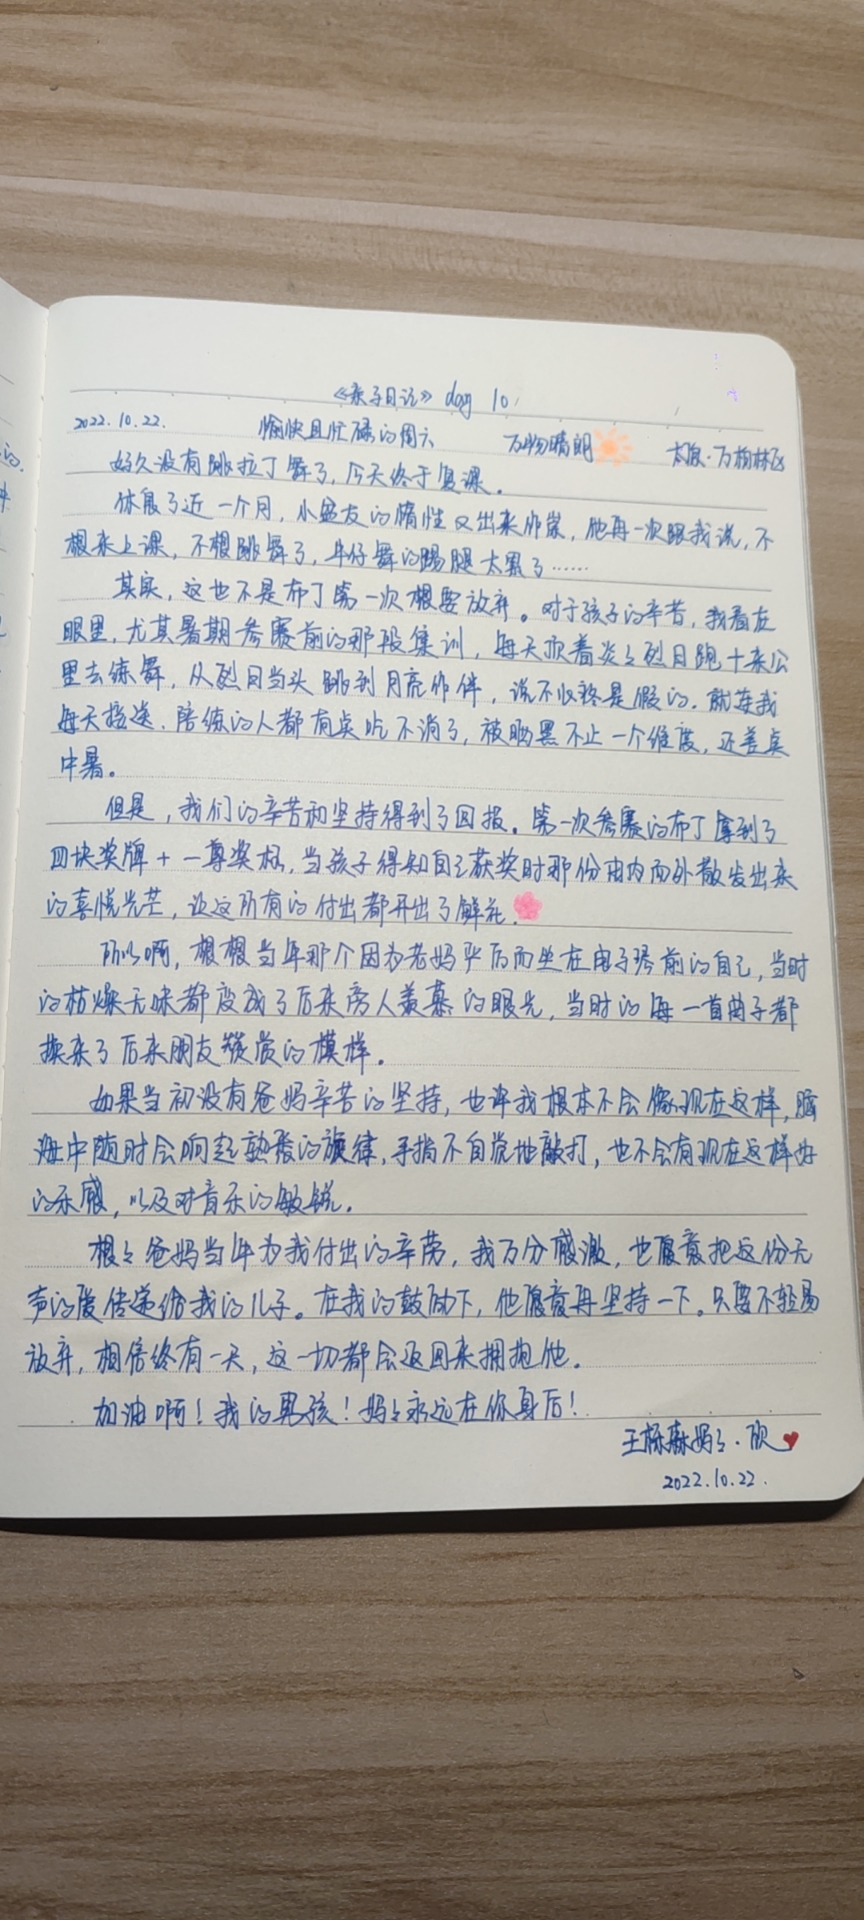 《亲子日记》day 10
2022.10.22. 愉快且忙碌的周六 万物晴朗 太原·万柏林区
好久没有跳拉丁舞了,今天终于复课。
休息了近一个月,小盆友的惰性又出来作祟,他再一次跟我说,不
想来上课,不想跳舞了,牛仔舞的踢腿太累了……
其实,这也不是布丁第一次想要放弃。对于孩子的辛苦,我看在
眼里,尤其暑期参赛前的那段集训,每天顶着炎々烈日跑十来公
里去练舞,从烈日当头跳到月亮作伴,说不心疼是假的.就连我
每天接送、陪练的人都有点吃不消了,被晒黑不止一个维度,还差点
中暑。
但是,我们的辛苦和坚持得到了回报。第一次参赛的布丁拿到了
四块奖牌+一尊奖杯,当孩子得知自己获奖时那份由内而外散发出来
的喜悦光芒,让这所有的付出都开出了鲜花.
所以啊,想想当年那个因为老妈严厉而坐在电子琴前的自己,当时
的枯燥无味都变成了后来旁人羡慕的眼光,当时的每一首曲子都
换来了后来朋友赞赏的模样。
如果当初没有爸妈辛苦的坚持,也许我根本不会像现在这样,脑
海中随时会响起熟悉的旋律,手指不自觉地敲打,也不会有现在这样好
的乐感,以及对音乐的敏锐.
想々爸妈当年为我付出的辛劳,我万分感激,也愿意把这份无
声的爱传递给我的儿子。在我的鼓励下,他愿意再坚持一下。只要不轻易
放弃,相信终有一天,这一切都会返回来拥抱他。
加油啊!我的男孩!妈々永远在你身后!
王栎森妈々·欣
2022.10.22.